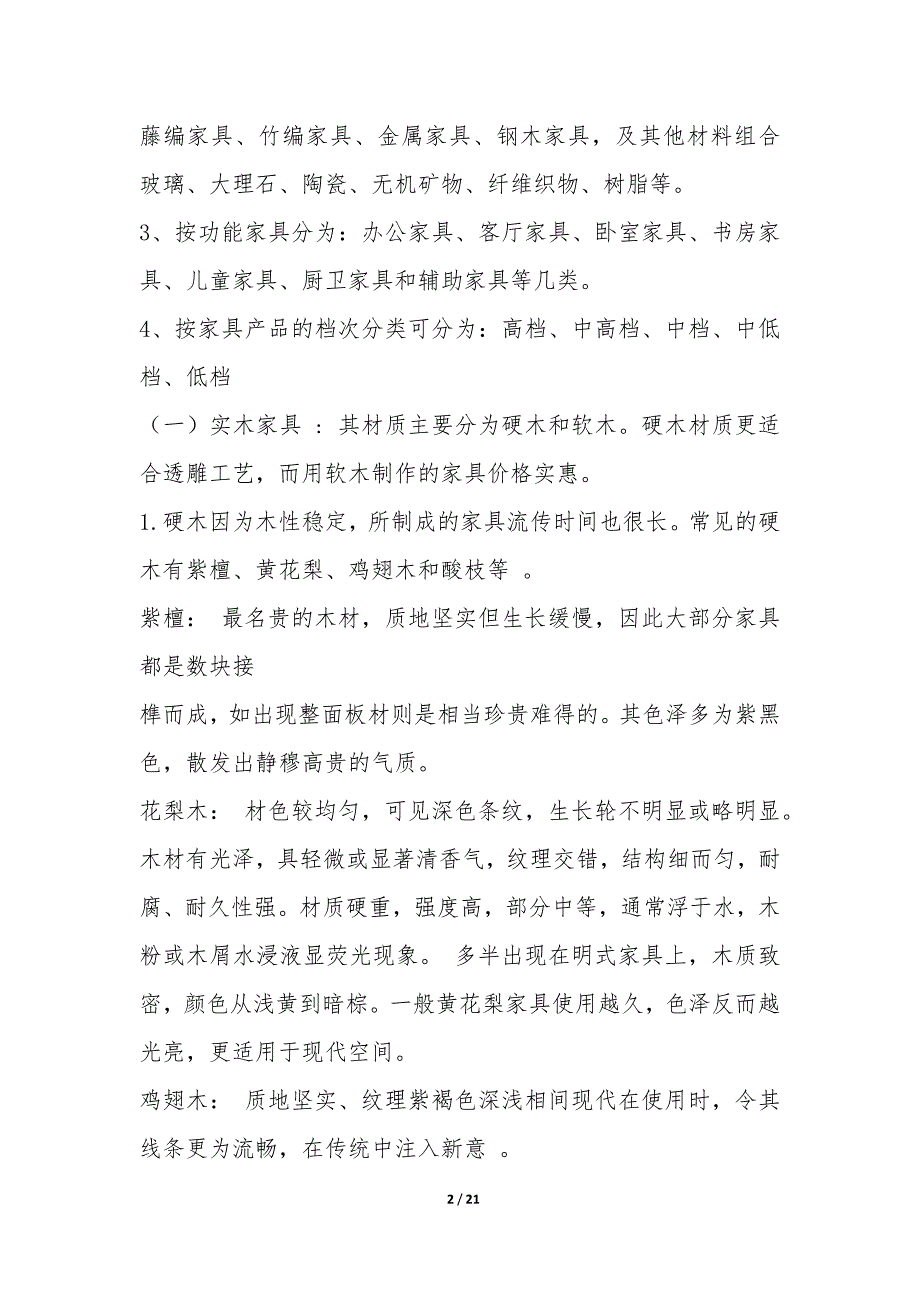 藤编家具、竹编家具、金属家具、钢木家具，及其他材料组合
玻璃、大理石、陶瓷、无机矿物、纤维织物、树脂等。
3、按功能家具分为：办公家具、客厅家具、卧室家具、书房家
具、儿童家具、厨卫家具和辅助家具等几类。
4、按家具产品的档次分类可分为：高档、中高档、中档、中低
档、低档
（一）实木家具 : 其材质主要分为硬木和软木。硬木材质更适
合透雕工艺，而用软木制作的家具价格实惠。
1.硬木因为木性稳定，所制成的家具流传时间也很长。常见的硬
木有紫檀、黄花梨、鸡翅木和酸枝等 。
紫檀： 最名贵的木材，质地坚实但生长缓慢，因此大部分家具
都是数块接
榫而成，如出现整面板材则是相当珍贵难得的。其色泽多为紫黑
色，散发出静穆高贵的气质。
花梨木： 材色较均匀，可见深色条纹，生长轮不明显或略明显。
木材有光泽，具轻微或显著清香气，纹理交错，结构细而匀，耐
腐、耐久性强。材质硬重，强度高，部分中等，通常浮于水，木
粉或木屑水浸液显荧光现象。 多半出现在明式家具上，木质致
密，颜色从浅黄到暗棕。一般黄花梨家具使用越久，色泽反而越
光亮，更适用于现代空间。
鸡翅木： 质地坚实、纹理紫褐色深浅相间现代在使用时，令其
线条更为流畅，在传统中注入新意 。
2 / 21